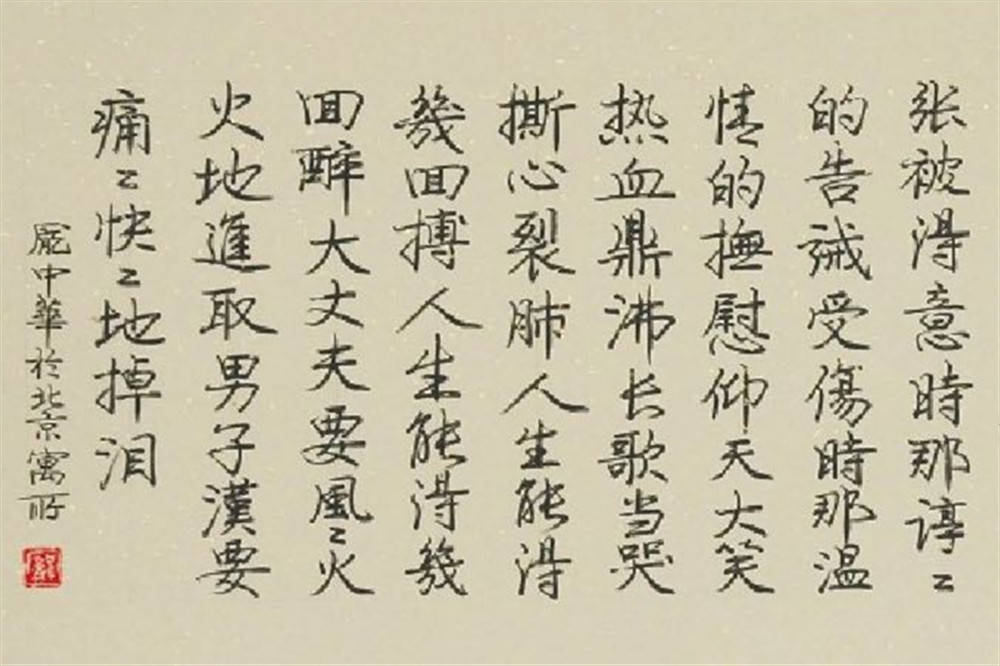 张被得意時那谆〻
的告诫受傷時那温
情的撫慰仰天大笑
热血鼎沸长歌当哭
撕心裂肺人生能得
幾回搏人生能得幾
回醉大丈夫要風〻火
火地進取男子漢要
痛〻快〻地掉泪
庞中華於北京寓所